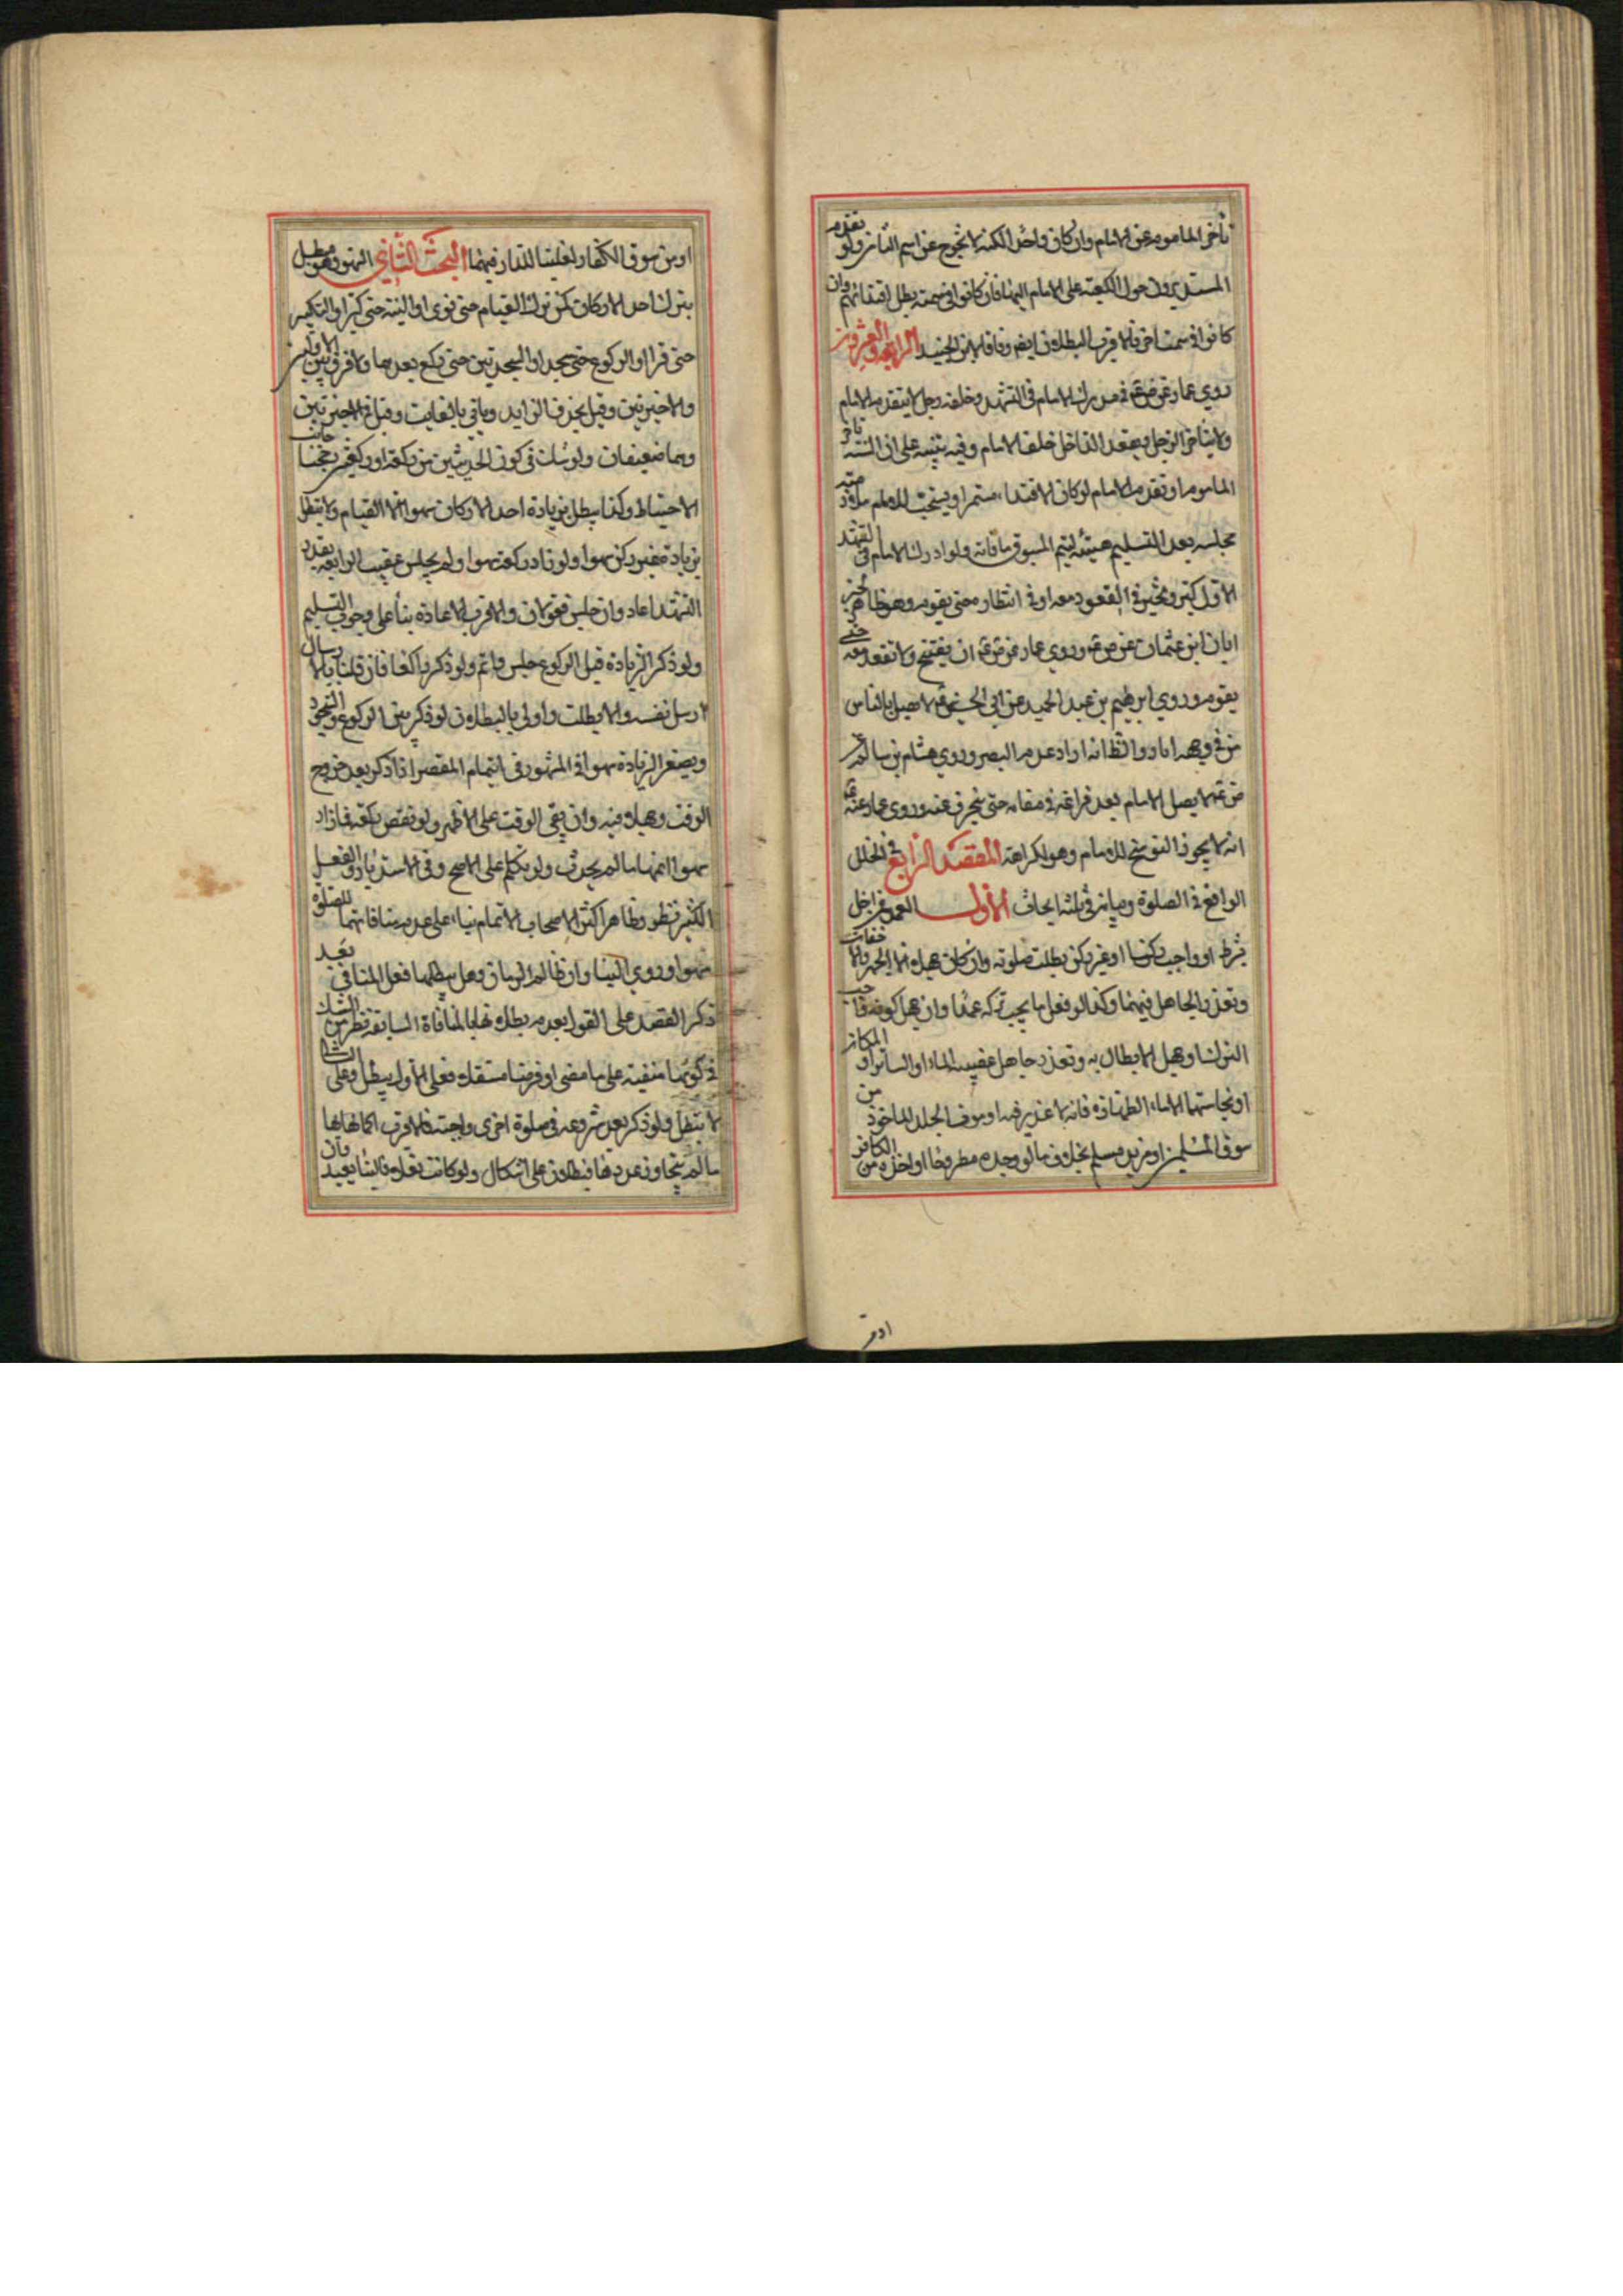 تأخر المأموم عن الامام وان كان واحدا لكنه لا يخرج عن اسم التأخر ولو تقدم
المستديرون حول الكعبة على الامام اليها فان كانوا في سمته بطل اقتداءهم وان
كانوا في سمت اخر فالاقرب البطلان ايضا وفاقا لابن الجنيد الرابعة والعشرون
روى عمار عن ص ع في مدرك الامام في التشهد وخلفه رجل لا يتقدم الامام
ولا يتأخر الرجل ويقعد الداخل خلف الامام وفيه تنبيه على ان السنة تأخر
المأموم او تقدم الامام لو كان الاقتداء مستمرا ويستحب للامام ملازمته
مجلسه بعد التسليم هيئة ليتم المسبوق ما فاته ولو ادرك الامام في التشهد
الاول كبر وتخير في القعود معه او في انتظاره حتى يقوم وهو ظاهر خبر
ابان ابن عثمان عن ص ع وروى عمار عن ص ع ان يفتتح ولا تقعد معه حتى
يقوم وروى ابرهيم بن عبد الحميد عن ابي الحسن ع لا يصل بالناس
من في وجهه اثار والظ انه اراد عدم البصر وروى هشام بن سالم عن
ص ع لا يصل الامام بعد فراغه في مقامه حتى ينحرف عنه وروى عمار عنه ع
انه لا يجوز التوشح للامام وهو لكراهة المقصد الرابع في الخلل
الواقع في الصلوة وبيانه في ثلثة ابحاث الاول العمد فمن اخل
بشرط او واجب ركنا او غير ركن بطلت صلوته وان كان جهلا الا الجهر والاخفات
وتعذر الجاهل فيهما وكذا لو فعل ما يجب تركه عمدا وان جهل كونه واجب
الترك او جهل الابطال به وتعذر جاهل غصب الماء او الساتر او المكان
او نجاستها الا ماء الطهارة فانه لا عذر فيه او موت الجلد المأخوذ من
سوق المسلمين او من يد مسلم بخلاف ما لو وجده مطروحا او اخذه من الكافر
او من
او من سوق الكفار لغلبة اللذان فيهما البحث الثاني السهو وهو مبطل
بترك احد الاركان كمن ترك القيام حتى نوى او النية حتى كبر او التكبير
حتى قرا او الركوع حتى سجد او السجدتين حتى ركع بعدها ولا فرق بين الاولتين
والاخيرتين وقيل يحذف الزايد وياتي بالفايت وقيل في الاخيرتين
وهما ضعيفان ولو شك في كون الحدثين من ركعة او ركعتين رجحنا جانب
الاحتياط وكذا يبطل بزيادة احد الاركان سهوا الا القيام ولا تبطل
بزيادة غير ركن سهوا ولو زاد ركعة سهوا ولم يجلس عقيب الرابعة بقدر
التشهد اعاد وان جلس فقولان والاقرب الاعادة بناء على وجوب التسليم
ولو ذكر الزيادة قبل الركوع جلس واتم ولو ذكر راكعا فان قلنا بالارسال
ارسل نفسه والا بطلت واولى بالبطلان لو ذكر بين الركوع والسجود
ويغتفر الزيادة سهوا في المشهور في اتمام المقصر اذا ذكر بعد خروج
الوقت وجهلا فيه وان بقي الوقت على الاظهر ولو نقص ركعة فما زاد
سهوا اتمها ما لم يحدث ولو تكلم على الاصح وفي الاستدبار والفعل
الكثير نظر وظاهر اكثر الاصحاب الاتمام بناء على عدم منافاتهما للصلوة
سهوا وروي البناء وان طال الزمان وهل يبطلها فعل المنافي بعد
ذكر القصد على القول بعدم بطلانها بالمنافاة السابقة نظر من الشك
في كونها منفية على ما مضى او فرضا مستقلا فعلى الاول يبطل وعلى الثاني
لا تبطل ولو ذكر بعد شروعه في صلوة اخرى واجبة فالاقرب اكمالها
ما لم يتجاوز عددها فبطلان على اشكال ولو كانت نفلا فالبناء بعيد وان